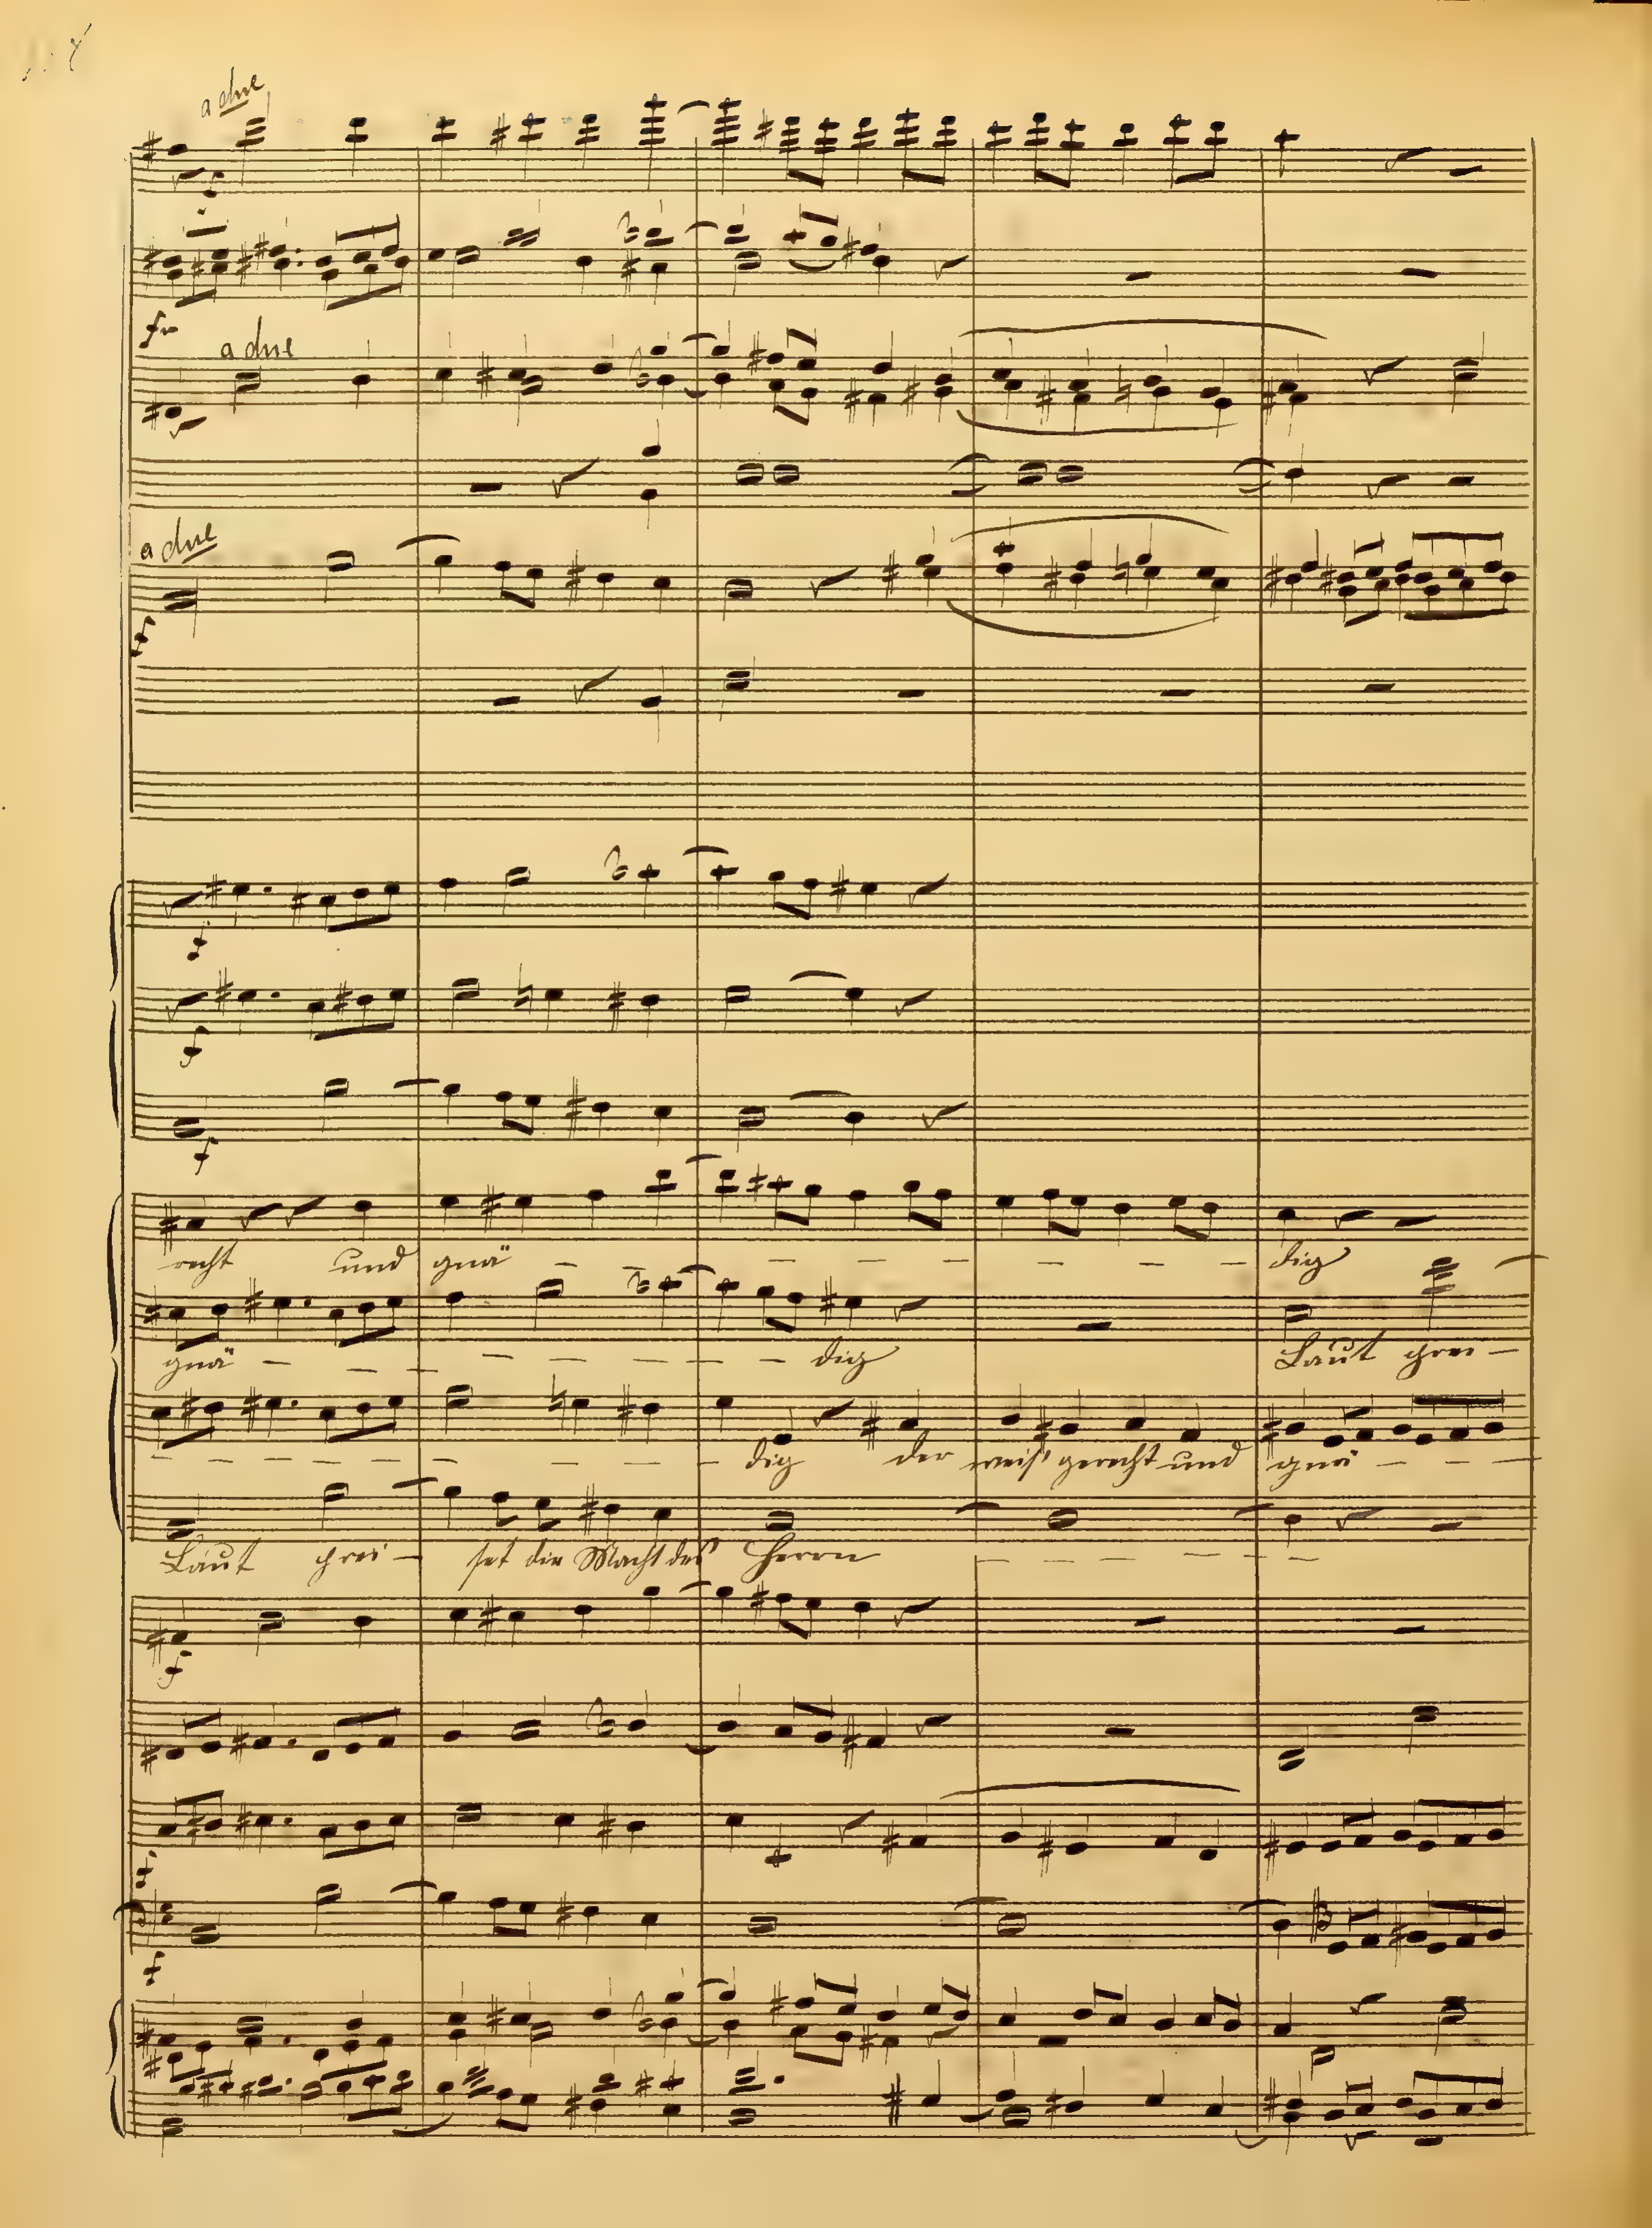 a due
a due
a due
recht und gnä - - - - - - - - dig
gnä - - - - - - - - dig Laut prei -
- - - - - - - - dig der weis' gerecht und gnä - - -
Laut prei - set die Macht des Herrn - - - - -